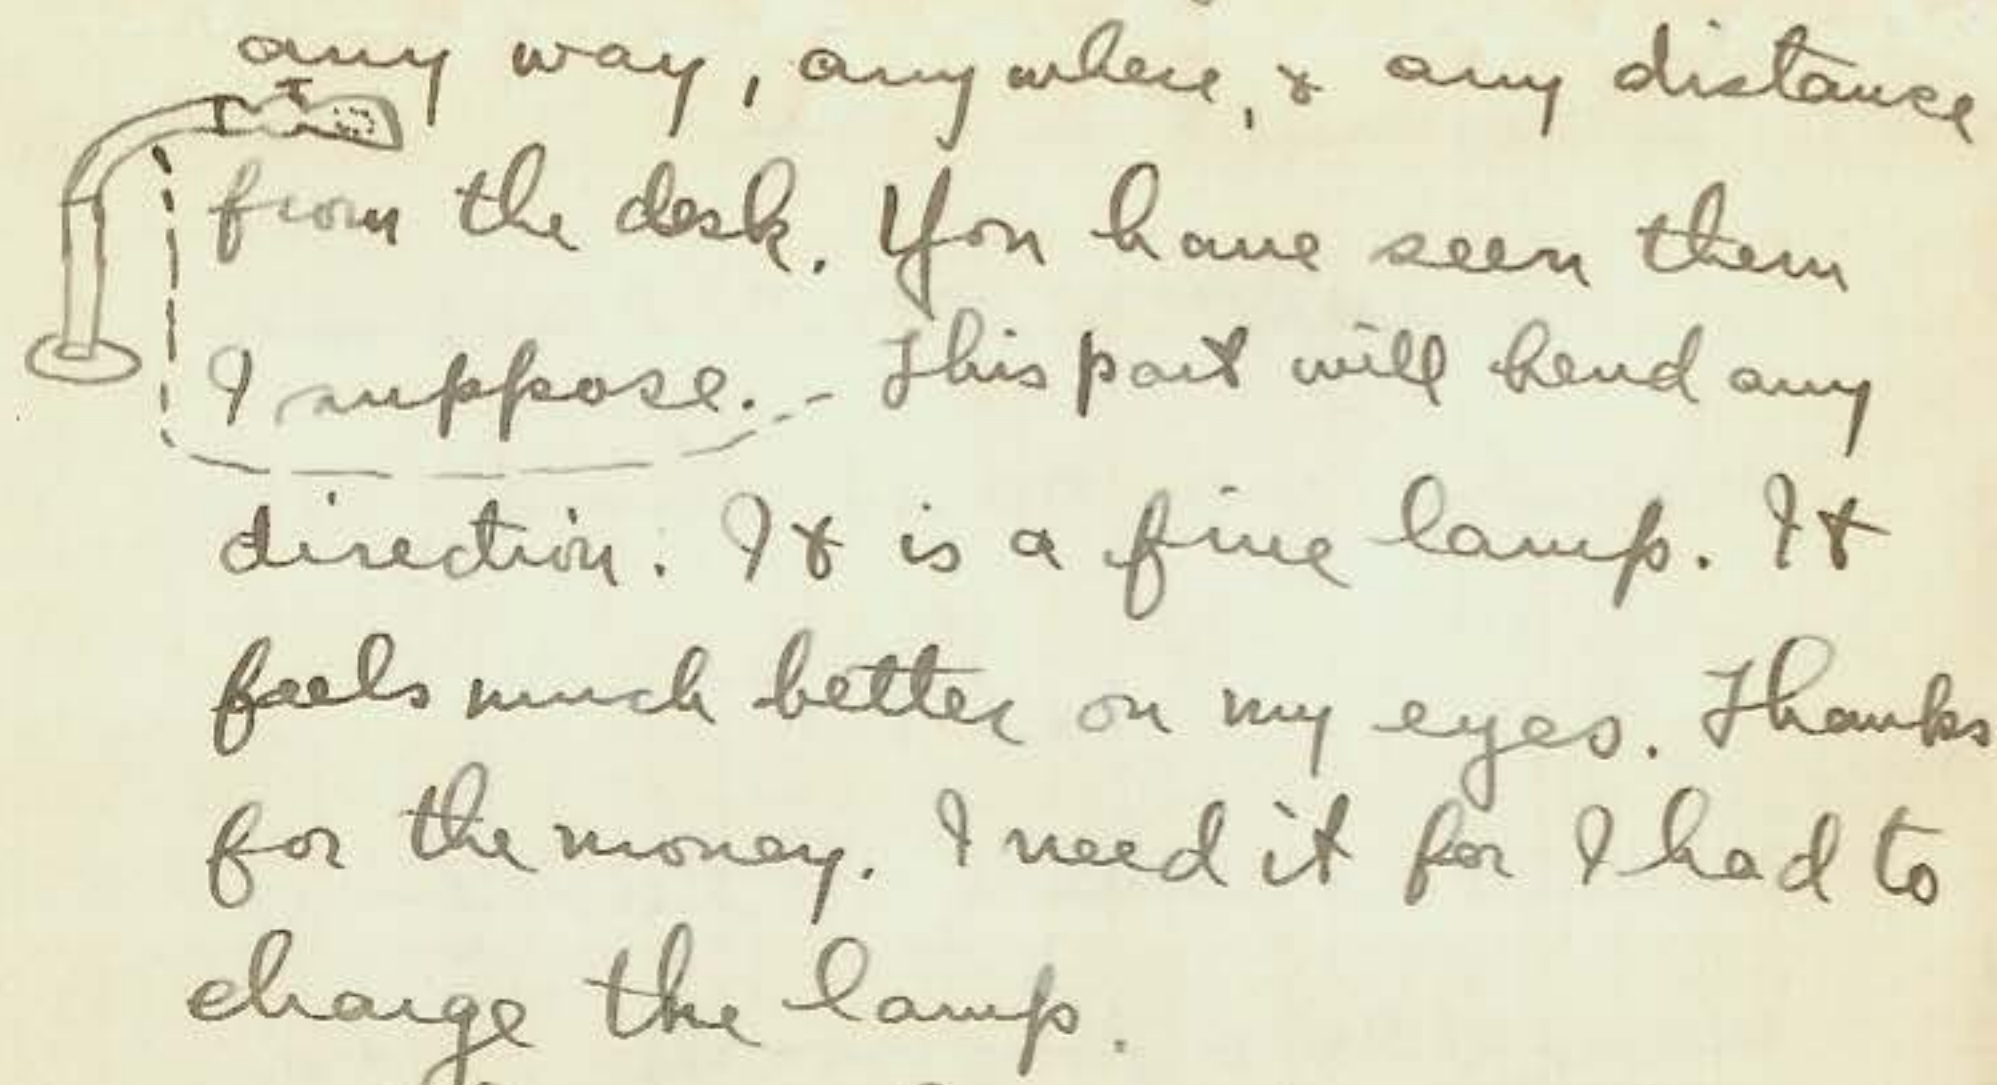 any way, anywhere, & any distance
from the desk. You have seen them
I suppose. - This part will bend any
direction. It is a fine lamp. It
feels much better on my eyes. Thanks
for the money. I need it for I had to
charge the lamp.